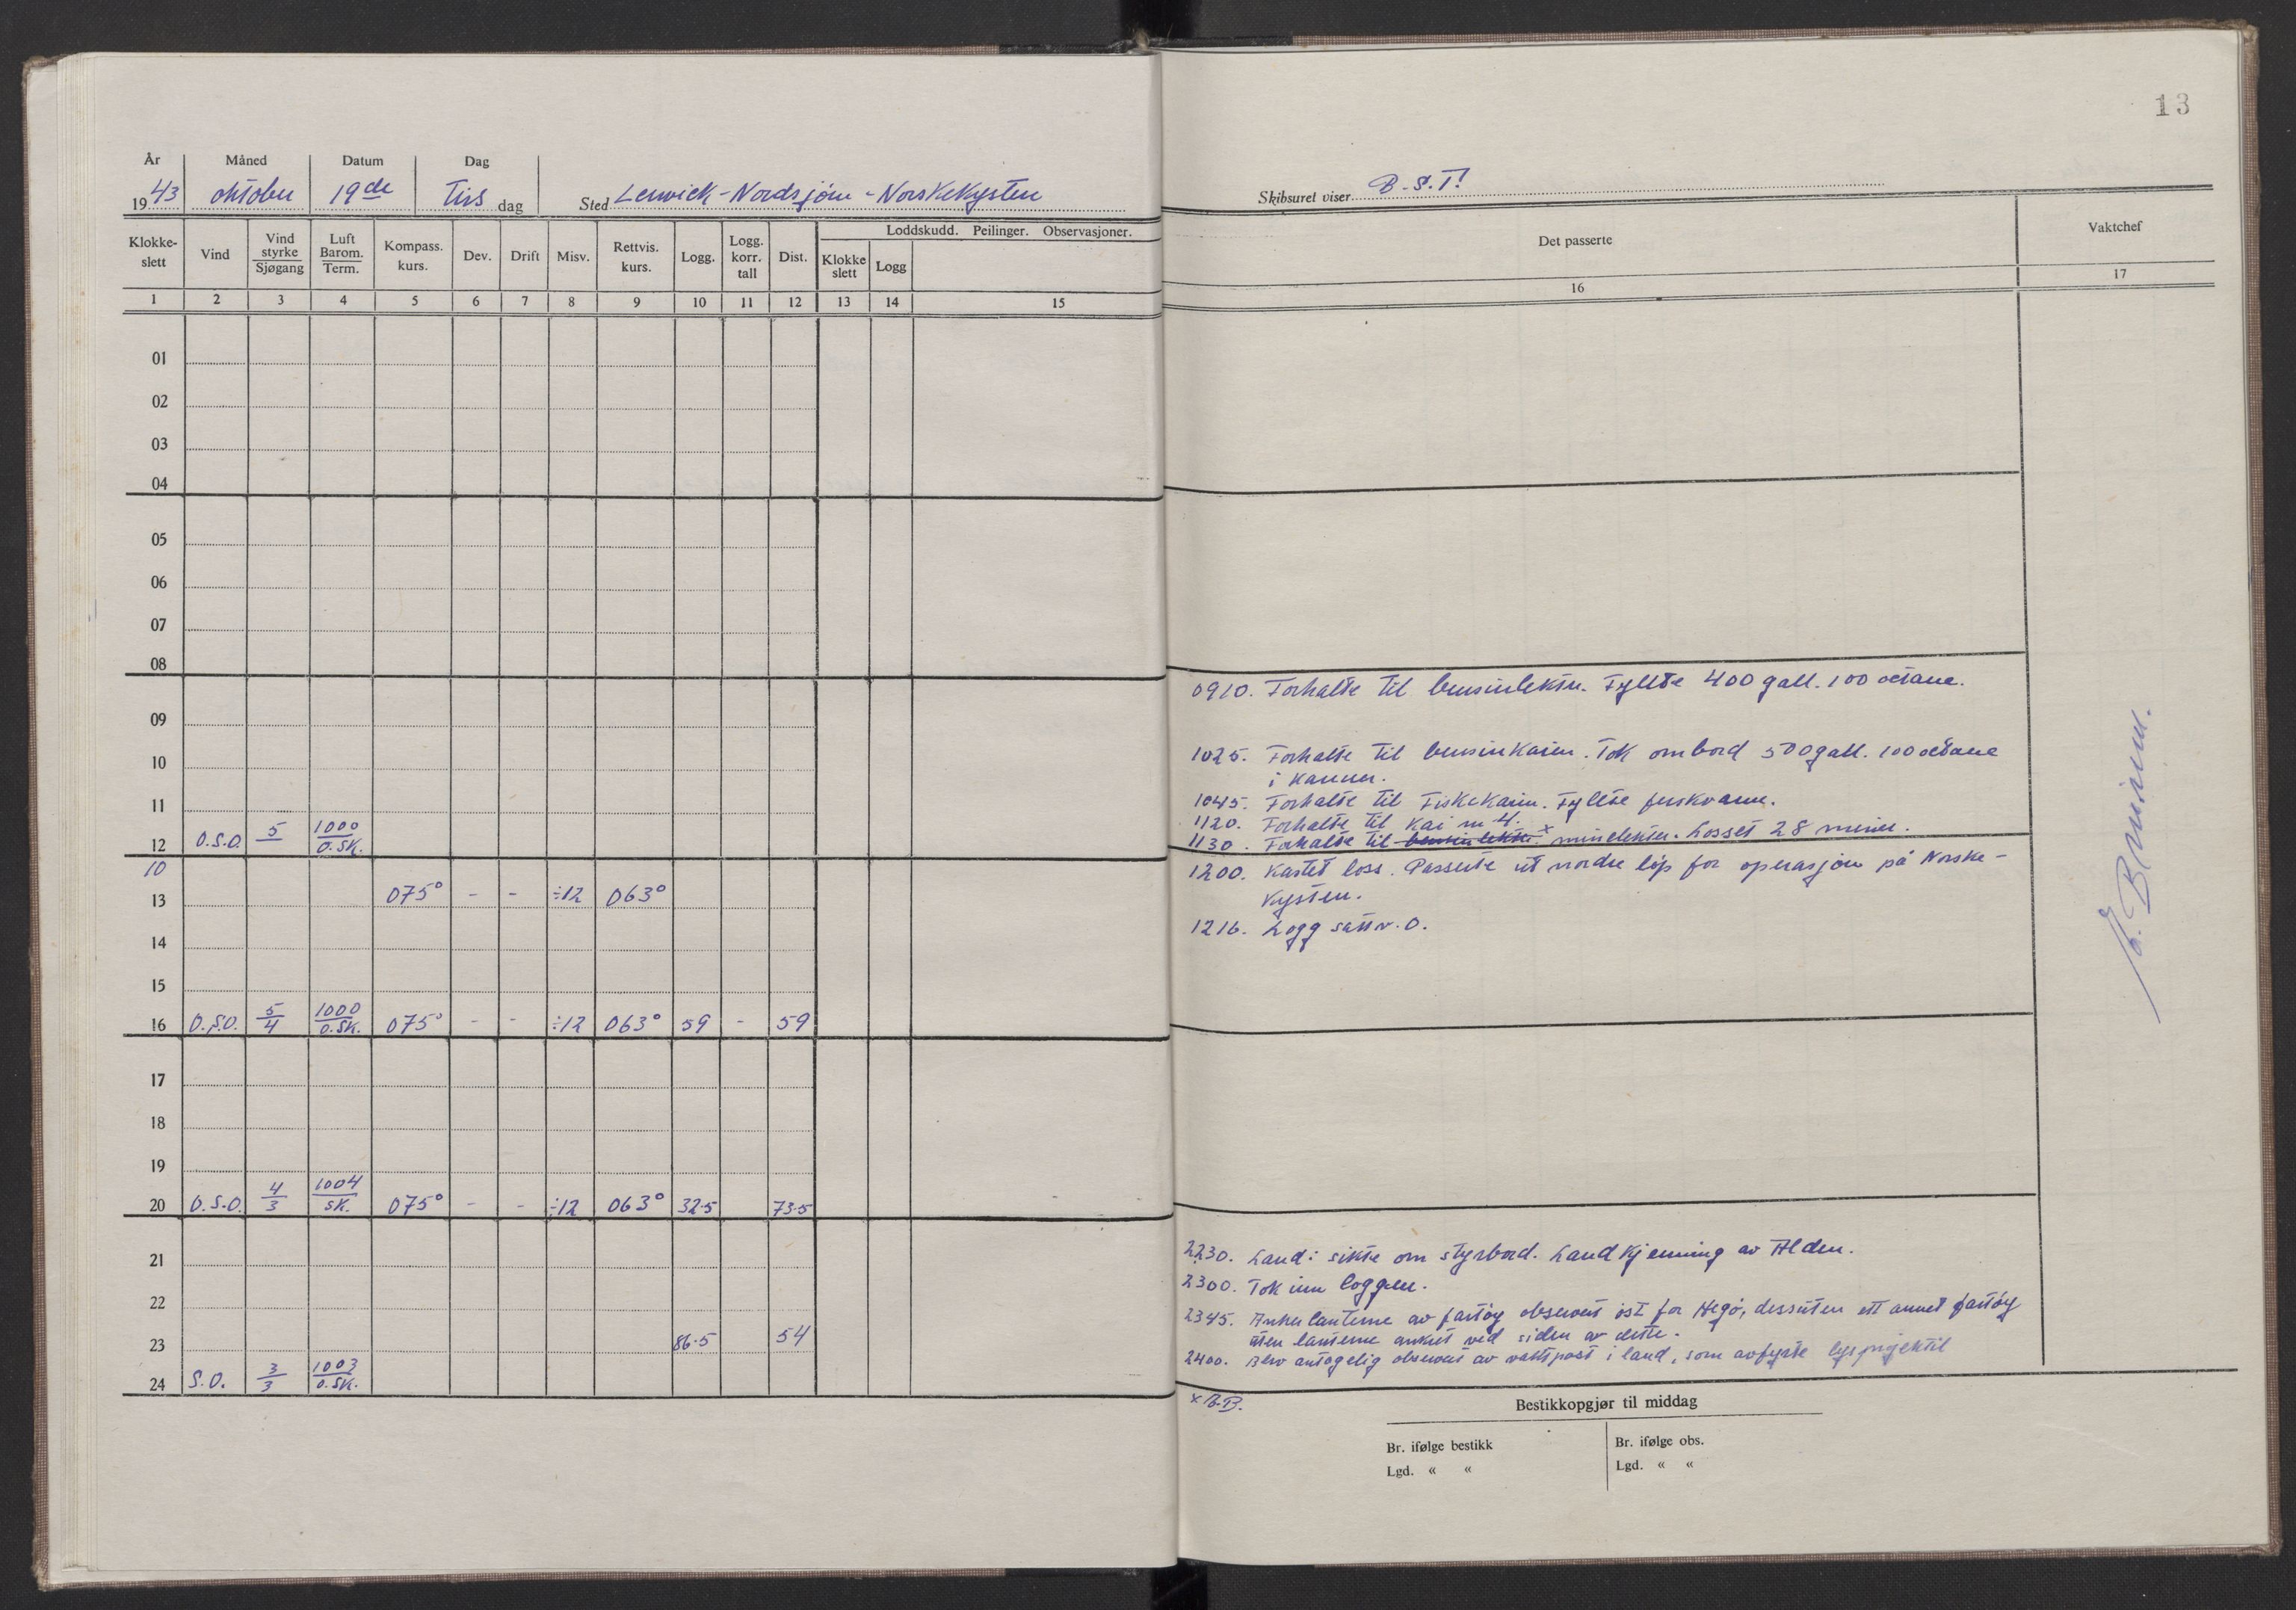 13
År Måned Datum Dag
1943 oktober 19de Tirs dag Sted Lerwick - Nordsjøen - Norskekysten
Skibsuret viser B.S.T.
Klokke-slett Vind Vind styrke Sjøgang Luft Barom. Term. Kompass. kurs. Dev. Drift Misv. Rettvis. kurs. Logg. Logg. korr. tall Dist. Loddskudd. Peilinger. Observasjoner. Klokke slett Logg
Det passerte Vaktchef
1 2 3 4 5 6 7 8 9 10 11 12 13 14 15 16 17
01
02
03
04
05
06
07
08
09
10
11
12 O.S.O. 5 1000 O.SK.
10
13 075° - - ÷12 063°
14
15
16 O.S.O. 5/4 1000 O.SK. 075° - - ÷12 063° 59 - 59
17
18
19
20 O.S.O. 4/3 1004 SK. 075° - - ÷12 063° 32.5 73.5
21
22
23 86.5 54
24 S.O. 3/3 1003 O.SK.
0910. Forhalte til bensinlekter. Fyllte 400 gall. 100 octane.
1025. Forhalte til bensinkaien. Tok ombord 500 gall. 100 octane
i kanner.
1045. Forhalte til Fiskekaien. Fyllte ferskvann.
1120. Forhalte til kai nr 4.
1130. Forhalte til bensinlekter x minelekter. Losset 28 miner.
1200. Kastet loss. Passerte ut nordre løp for operasjon på Norske-
kysten.
1216. Logg satt v. 0.
2230. Land i sikte om styrbord. Landkjenning av Alden.
2300. Tok inn loggen.
2345. Ankerlanterne av fartøy observert øst for Hegø, dessuten ett annet fartøy
uten lanterne ankret ved siden av dette.
2400. Blev antagelig observert av vaktpost i land, som avfyrte lysprojektil
x B.B.
Bestikkopgjør til middag
Br. ifølge bestikk Br. ifølge obs.
Lgd. « « Lgd. « «